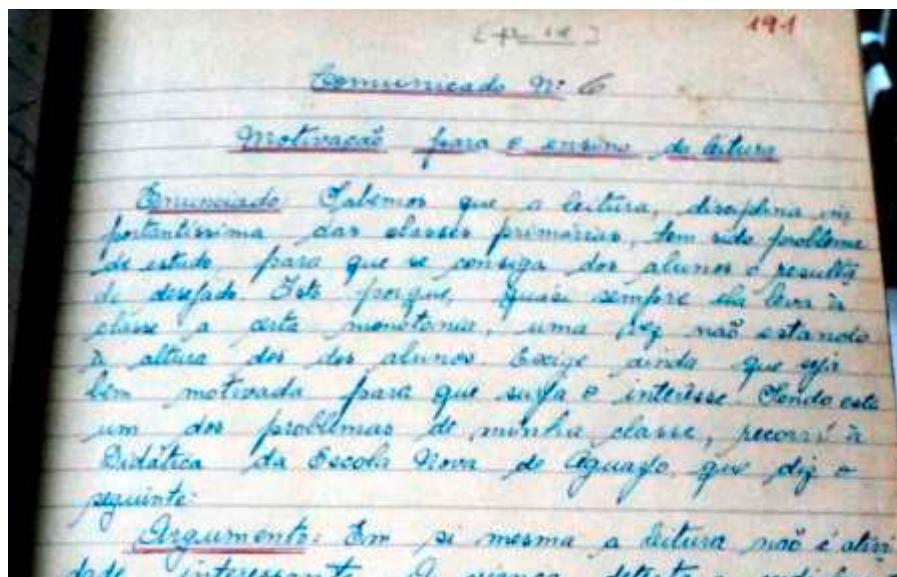 191
Comunicado Nº 6
Motivação para o ensino da leitura
Enunciado: Sabemos que a leitura, disciplina im
portantíssima das classes primárias, tem sido problema
de estudo, para que se consiga dos alunos o resulta
do desejado. Isto porque, quasi sempre ela leva à
classe a certa monotonia, uma vez não estando
à altura dos dos alunos. Exige ainda que seja
bem motivada para que surja o interêsse. Sendo este
um dos problemas de minha classe, recorri à
Didática da Escola Nova de Aguayo, que diz o
seguinte:
Argumento: Em si mesma a leitura não é ativi
dade interessante. A criança detesta a